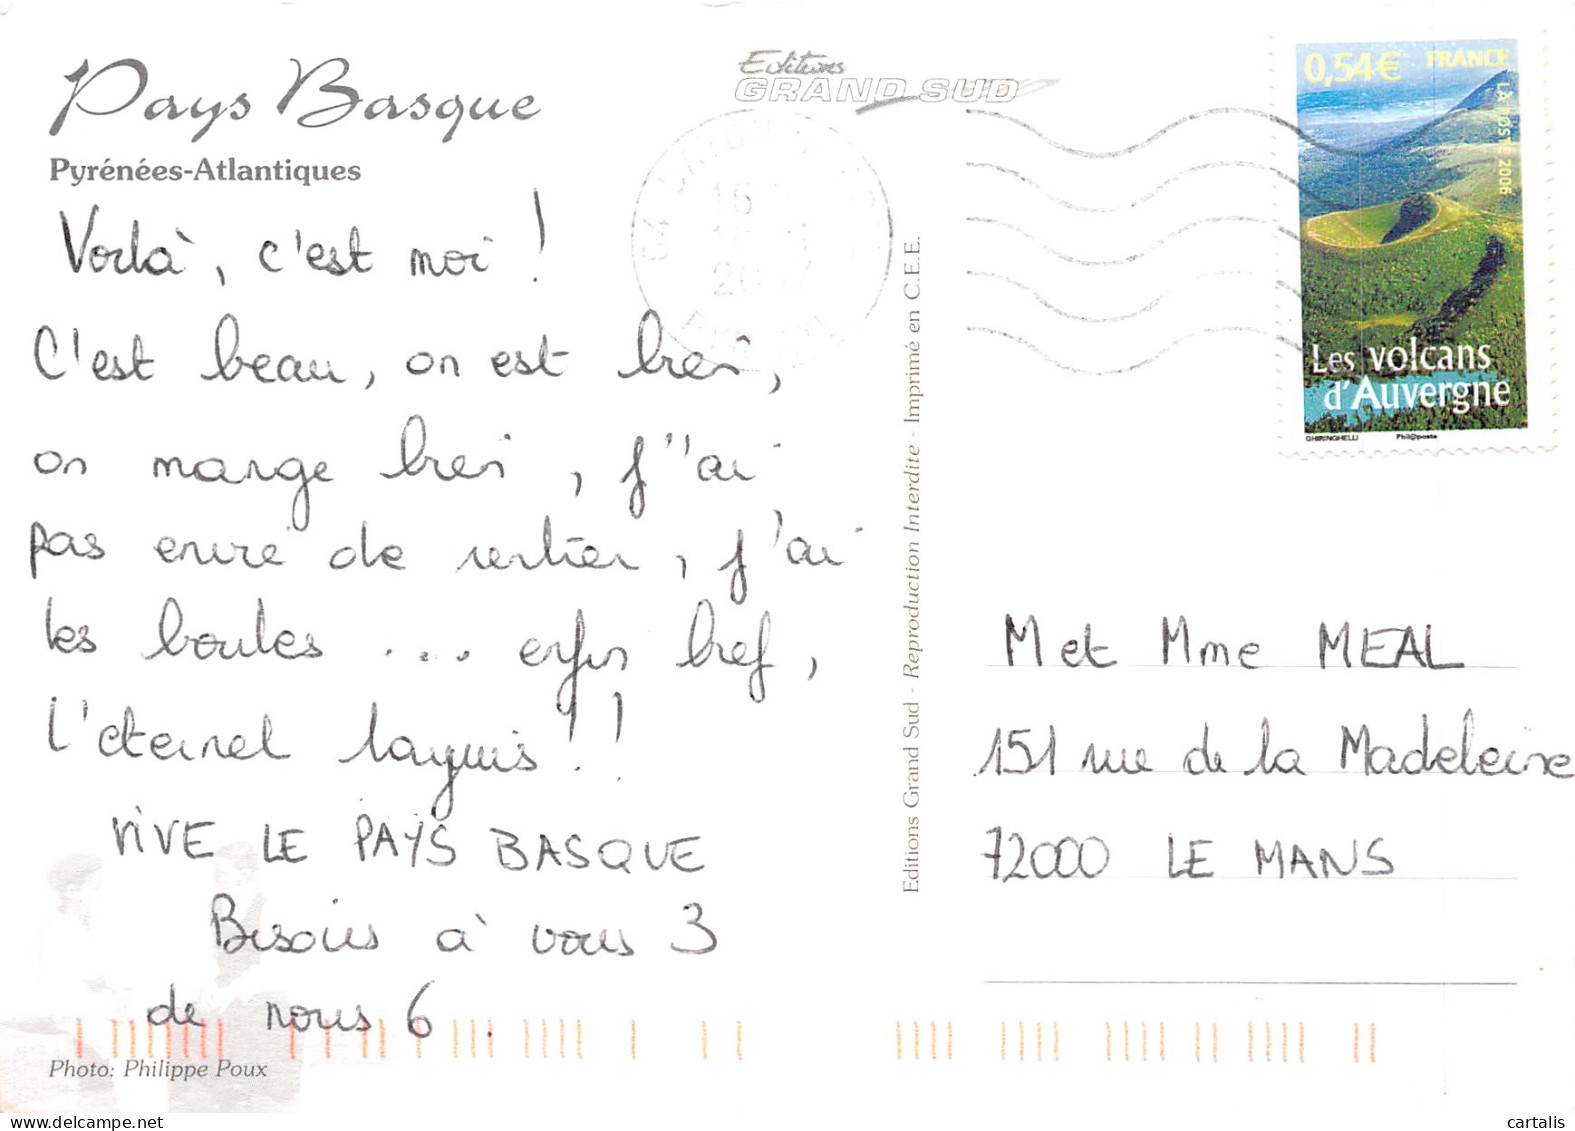 Pays Basque
Pyrénées-Atlantiques
Editions
GRAND SUD
0,54€ FRANCE
LA POSTE 2006
Les volcans
d'Auvergne
GHIRINGHELLI Phil@poste
16
Voilà, c'est moi !
C'est beau, on est bien,
on mange bien, j''ai
pas envie de rentrer, j'ai
les boules ... enfin bref,
l'éternel !!
VIVE LE PAYS BASQUE
Bisous à vous 3
de nous 6.
Photo: Philippe Poux
Editions Grand Sud - Reproduction Interdite - Imprimé en C.E.E.
M et Mme MEAL
151 rue de la Madeleine
72000 LE MANS
cartalis